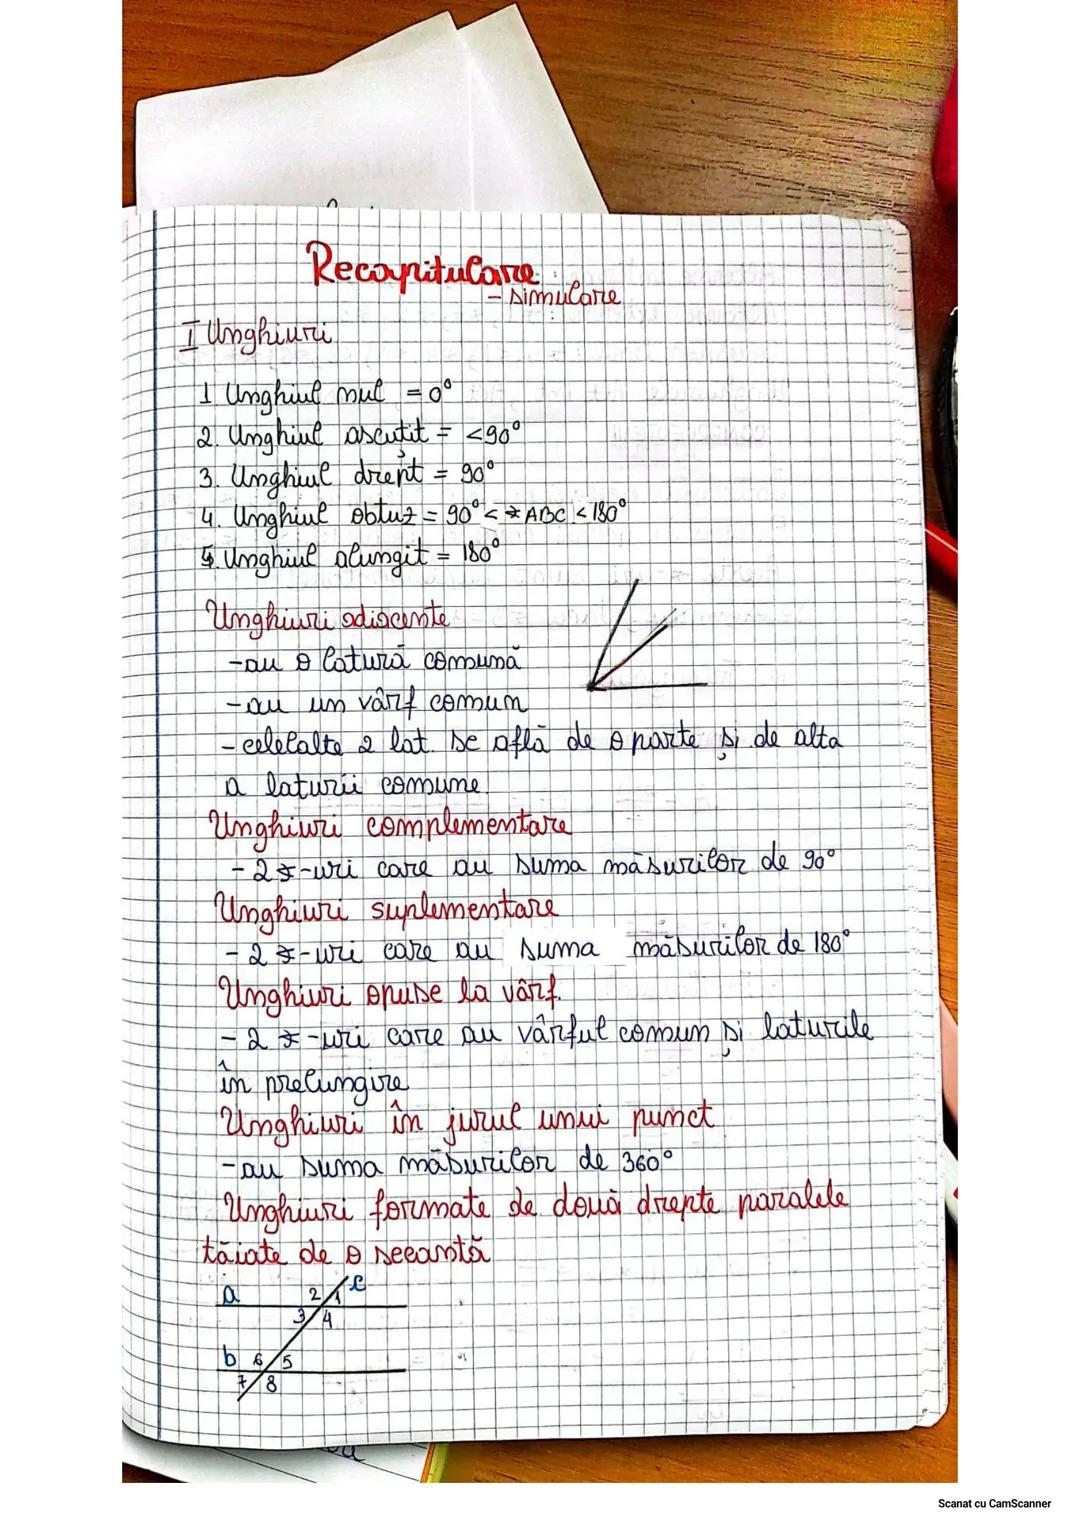 Recapitulare:
- simulare
I Unghiuri
1 Unghiul nul = 0°
2. Unghiul ascuțit = <90°
3. Unghiul drept = 90°
4. Unghiul obtuz = 90° < ∢ ABC < 180°
5. Unghiul alungit = 180°
Unghiuri adiacente
-au o latură comună
-au un vârf comun
- celelalte 2 lat. se află de o parte și de alta
a laturii comune
Unghiuri complementare
- 2 ∢-uri care au suma măsurilor de 90°
Unghiuri suplementare
- 2 ∢-uri care au suma măsurilor de 180°
Unghiuri opuse la vârf.
- 2 ∢-uri care au vârful comun și laturile
în prelungire
Unghiuri în jurul unui punct
-au suma măsurilor de 360°
Unghiuri formate de două drepte paralele
tăiate de o secantă
a 2 1 c
3 4
b 6 5
7 8
Scanat cu CamScanner